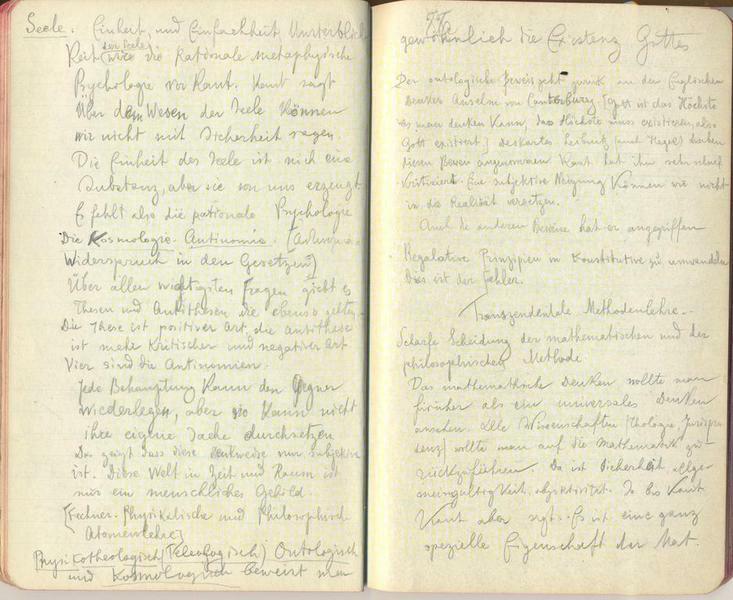 Seele: Einheit, und Einfachheit, Unsterblich-
Keit der Seele wie die Rationale metaphysische
Psychologie vor Kant. Kant sagt
Über dem Wesen der Seele Können
wir nicht mit Sicherheit sagen.
Die Einheit der Seele ist nich eine
Substanz, aber sie von uns erzeugt
Es fehlt also die rationale Psychologie
Die Kosmologie. Antinomie.
Widerspruch in den Gesetzen]
Über allen wichtigsten Fragen giebt es
Thesen und Antithesen die ebenso
Die These ist positiver Art, die antithese
ist mehr Kritischer und negativer Art
Vier sind die Antinomien.
Jede Behauptung Kann den Gegner
wiederlegen, aber so Kann nicht
ihre eigene Sache durchsetzen
Das zeigt dass diese denkweise nur subjektiv
ist. Diese Welt in Zeit und Raum ist
nur ein menschliches Gebild.
[Fechner. Physikalische und Philosophisch
Atomenlehre]
Physikotheologisch (Teleologisch) Ontologisch
und Kosmologisch beweist man
gewöhnlich die Existenz Gottes
Der ontologische Beweis geht zurük an den Englischen
Denker Anselm von Canterburg. [Gott ist das Höchste
was man denken Kann, das Höchste muss existieren, also
Gott existiert] Deskartes Leibnitz (und Hegel) haben
diesen Beweis angenommen Kant hat ihn sehr scharf
Kritisiert. Eine subjektive Neigung Können wir nicht
in die Realität versetzen.
Auch die anderen Beweise hat er angegriffen
Regulative Prinzipien in Konstitutive zu umwandeln
Dies ist der Fehler.
Transzendentale Methodenlehre.
Scharfe Scheidung der mathematischen und der
philosophischen Methode.
Das mathematische Denken wollte man
früher als ein universales Denken
ansehen. Alle Wissenschaften (Theologie, Jurispru-
denz) wollte man auf die Mathematik zu-
rückzuführen. Da ist Sicherheit, allge-
meingültigkeit, objektivität. So bis Kant
Kant aber sagt. Es ist eine ganz
spezielle Eigenschaft der Mat.